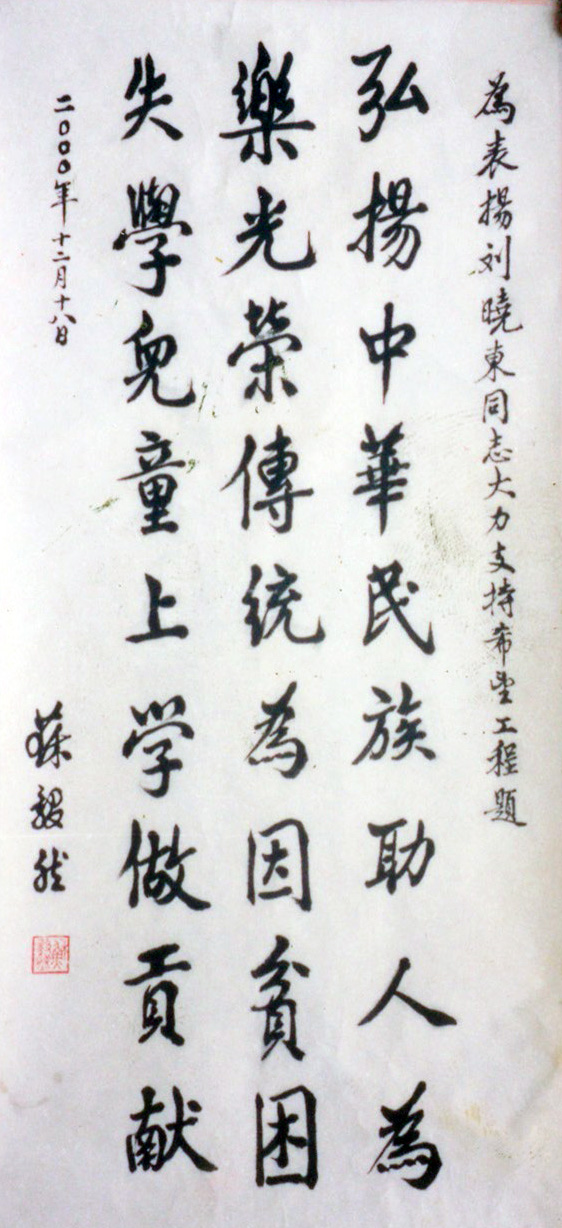 為表揚刘曉東同志大力支持希望工程題
弘揚中華民族助人為
樂光榮傳统為因貧困
失學兒童上学做貢献
二000年十二月十八日
蘇毅然